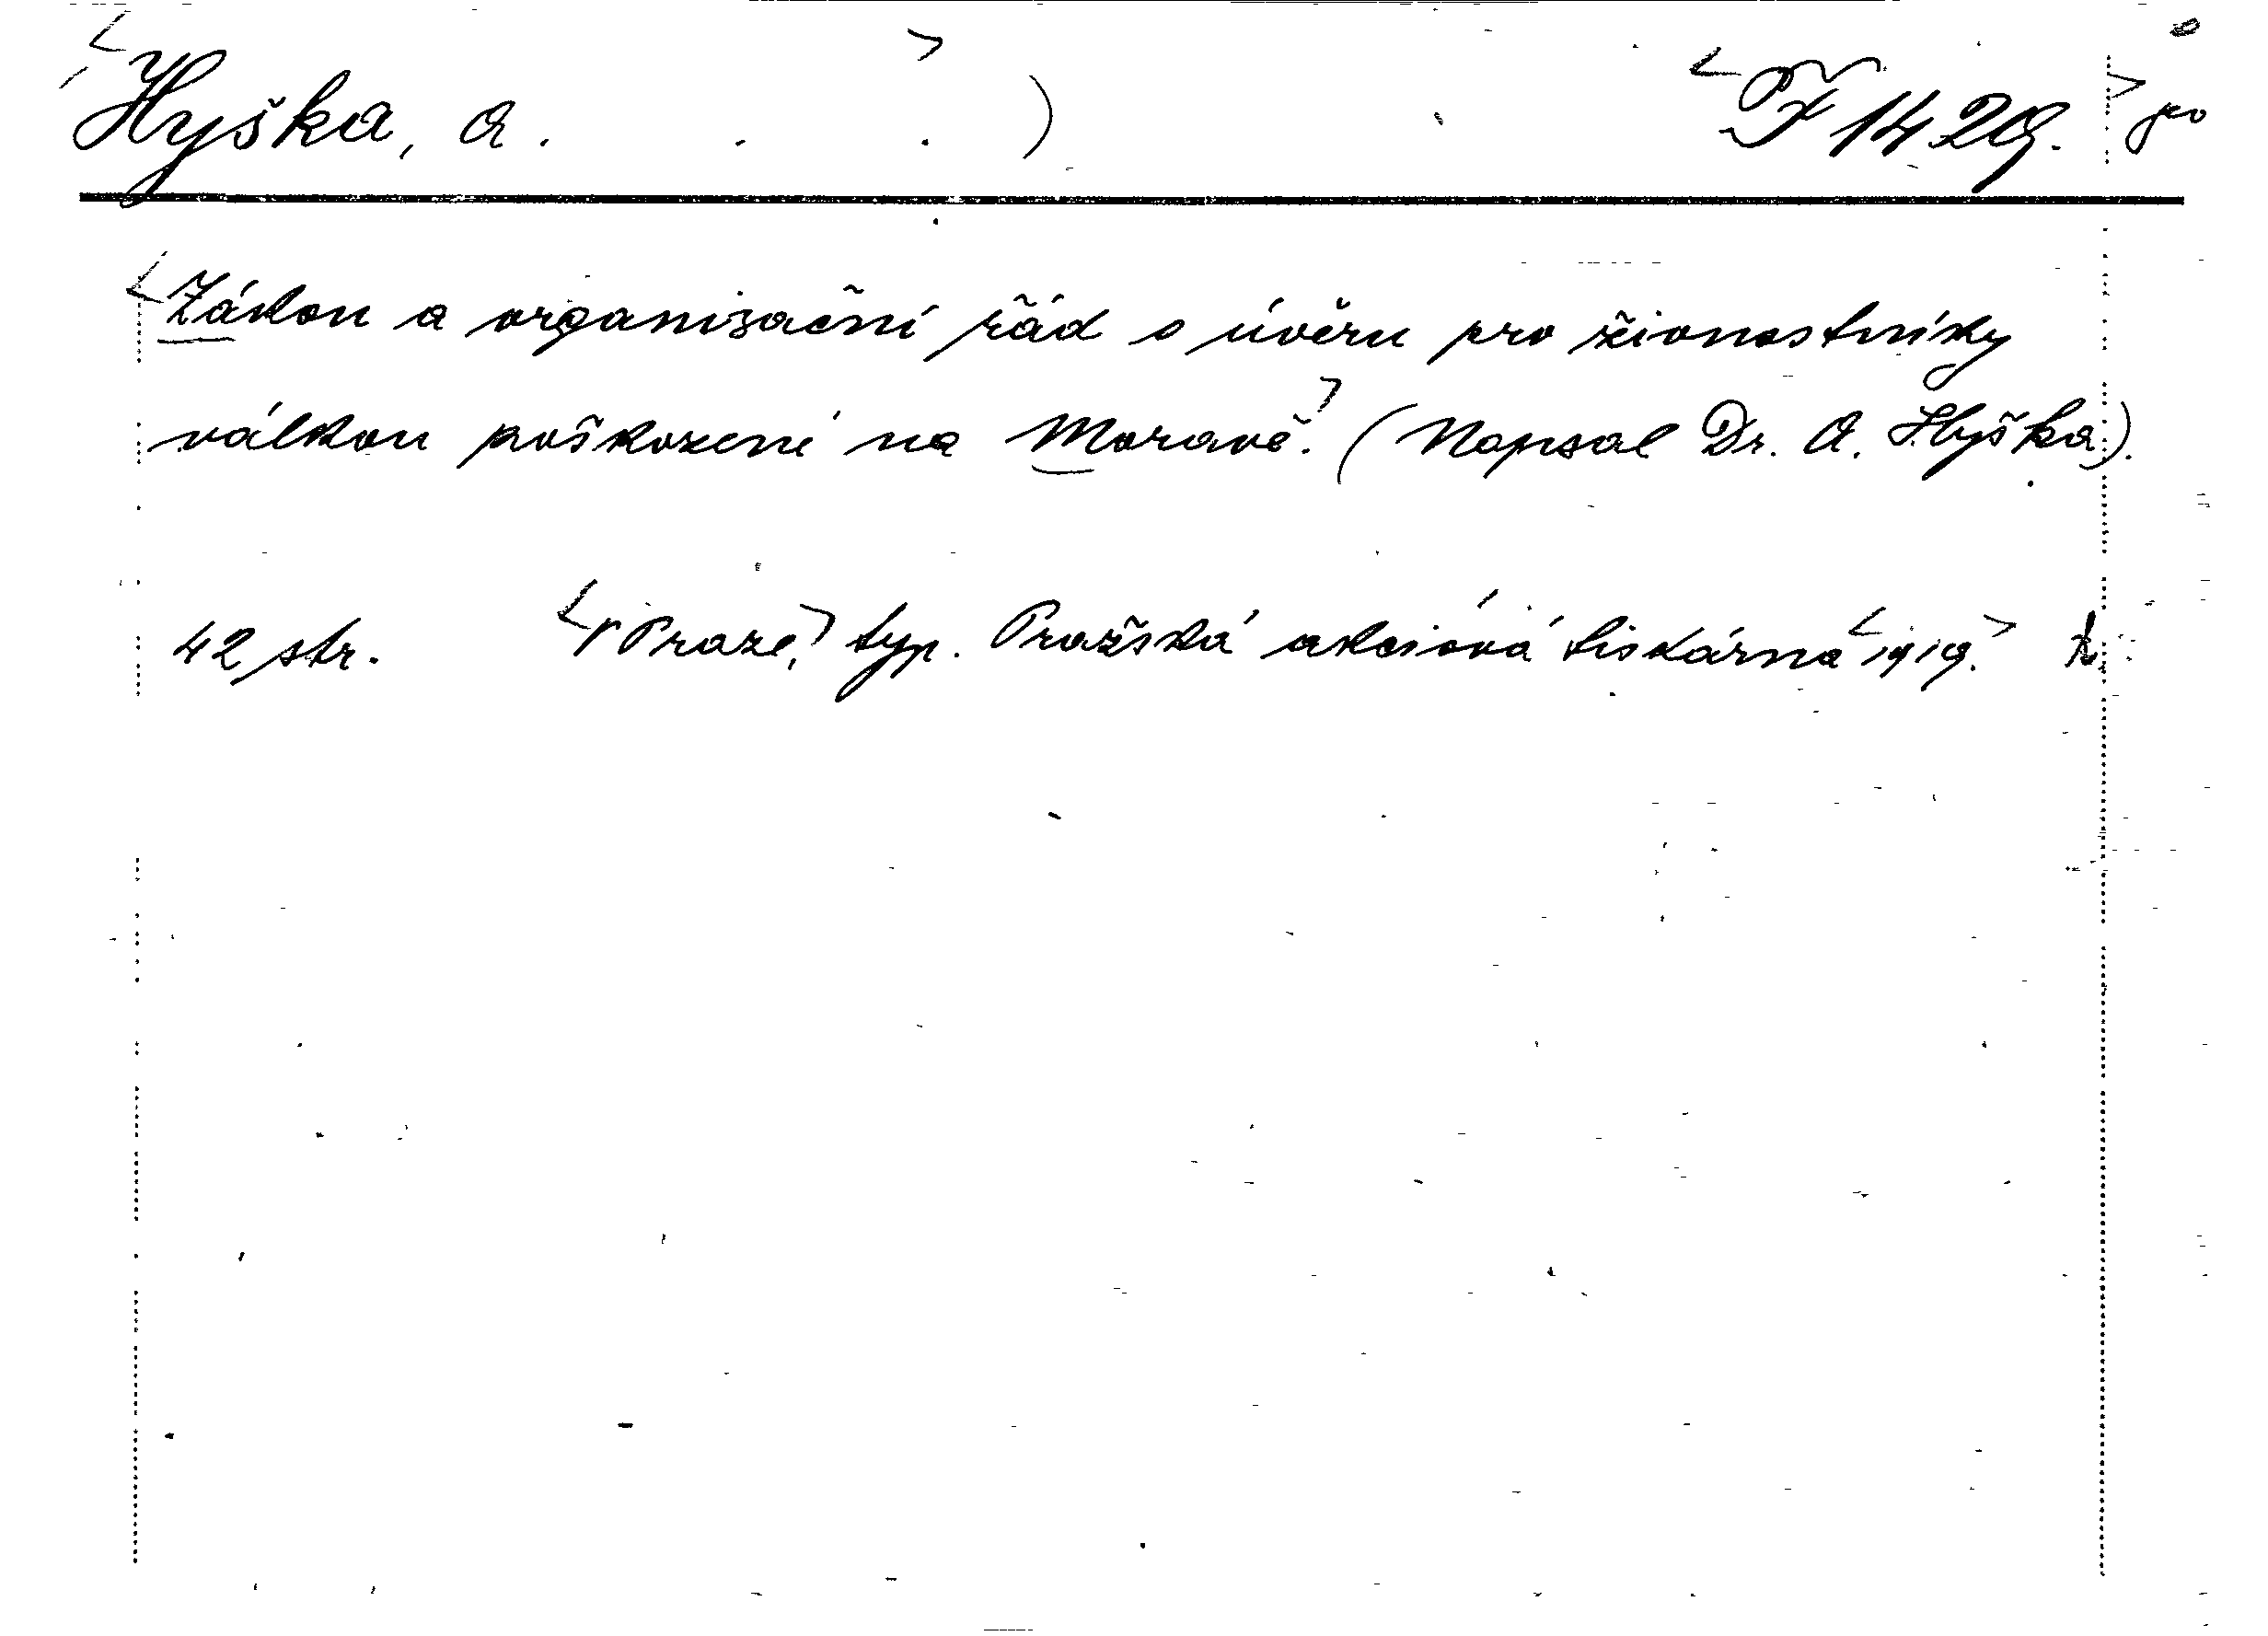 <Hyška, A. . . > ) <F 1429.>
<Zákon a organisační řád o úvěru pro živnostníky
válkou poškozené na Moravě.> (Napsal Dr. A. Hyška).
42 str. <V Praze,> typ. Pražská akciová tiskárna <1919.>